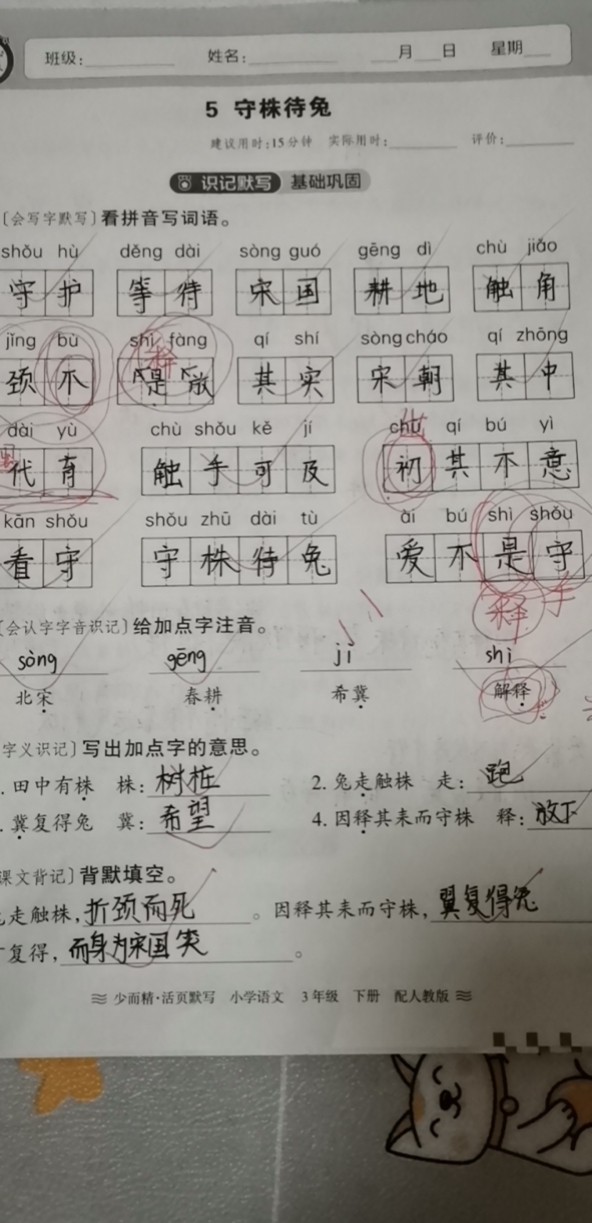 班级: 姓名: 月 日 星期
5 守株待兔
建议用时:15分钟 实际用时: 评价:
识记默写 基础巩固
〔会写字默写〕看拼音写词语。
shǒu hù děng dài sòng guó gēng dì chù jiǎo
守护 等待 宋国 耕地 触角
jǐng bù shì fàng qí shí sòng cháo qí zhōng
颈不 是放 其实 宋朝 其中
释
dài yù chù shǒu kě jí chū qí bú yì
代育 触手可及 初其不意
出
kān shǒu shǒu zhū dài tù ài bú shì shǒu
看守 守株待兔 爱不是守
释手
〔会认字字音识记〕给加点字注音。
sòng gēng jì shì
北宋 春耕 希冀 解释
字义识记〕写出加点字的意思。
. 田中有株 株: 树桩 2. 兔走触株 走: 跑
. 冀复得兔 冀: 希望 4. 因释其耒而守株 释: 放下
课文背记〕背默填空。
走触株, 折颈而死 。因释其耒而守株, 翼复得兔
复得, 而身为宋国笑 。
少而精·活页默写 小学语文 3年级 下册 配人教版